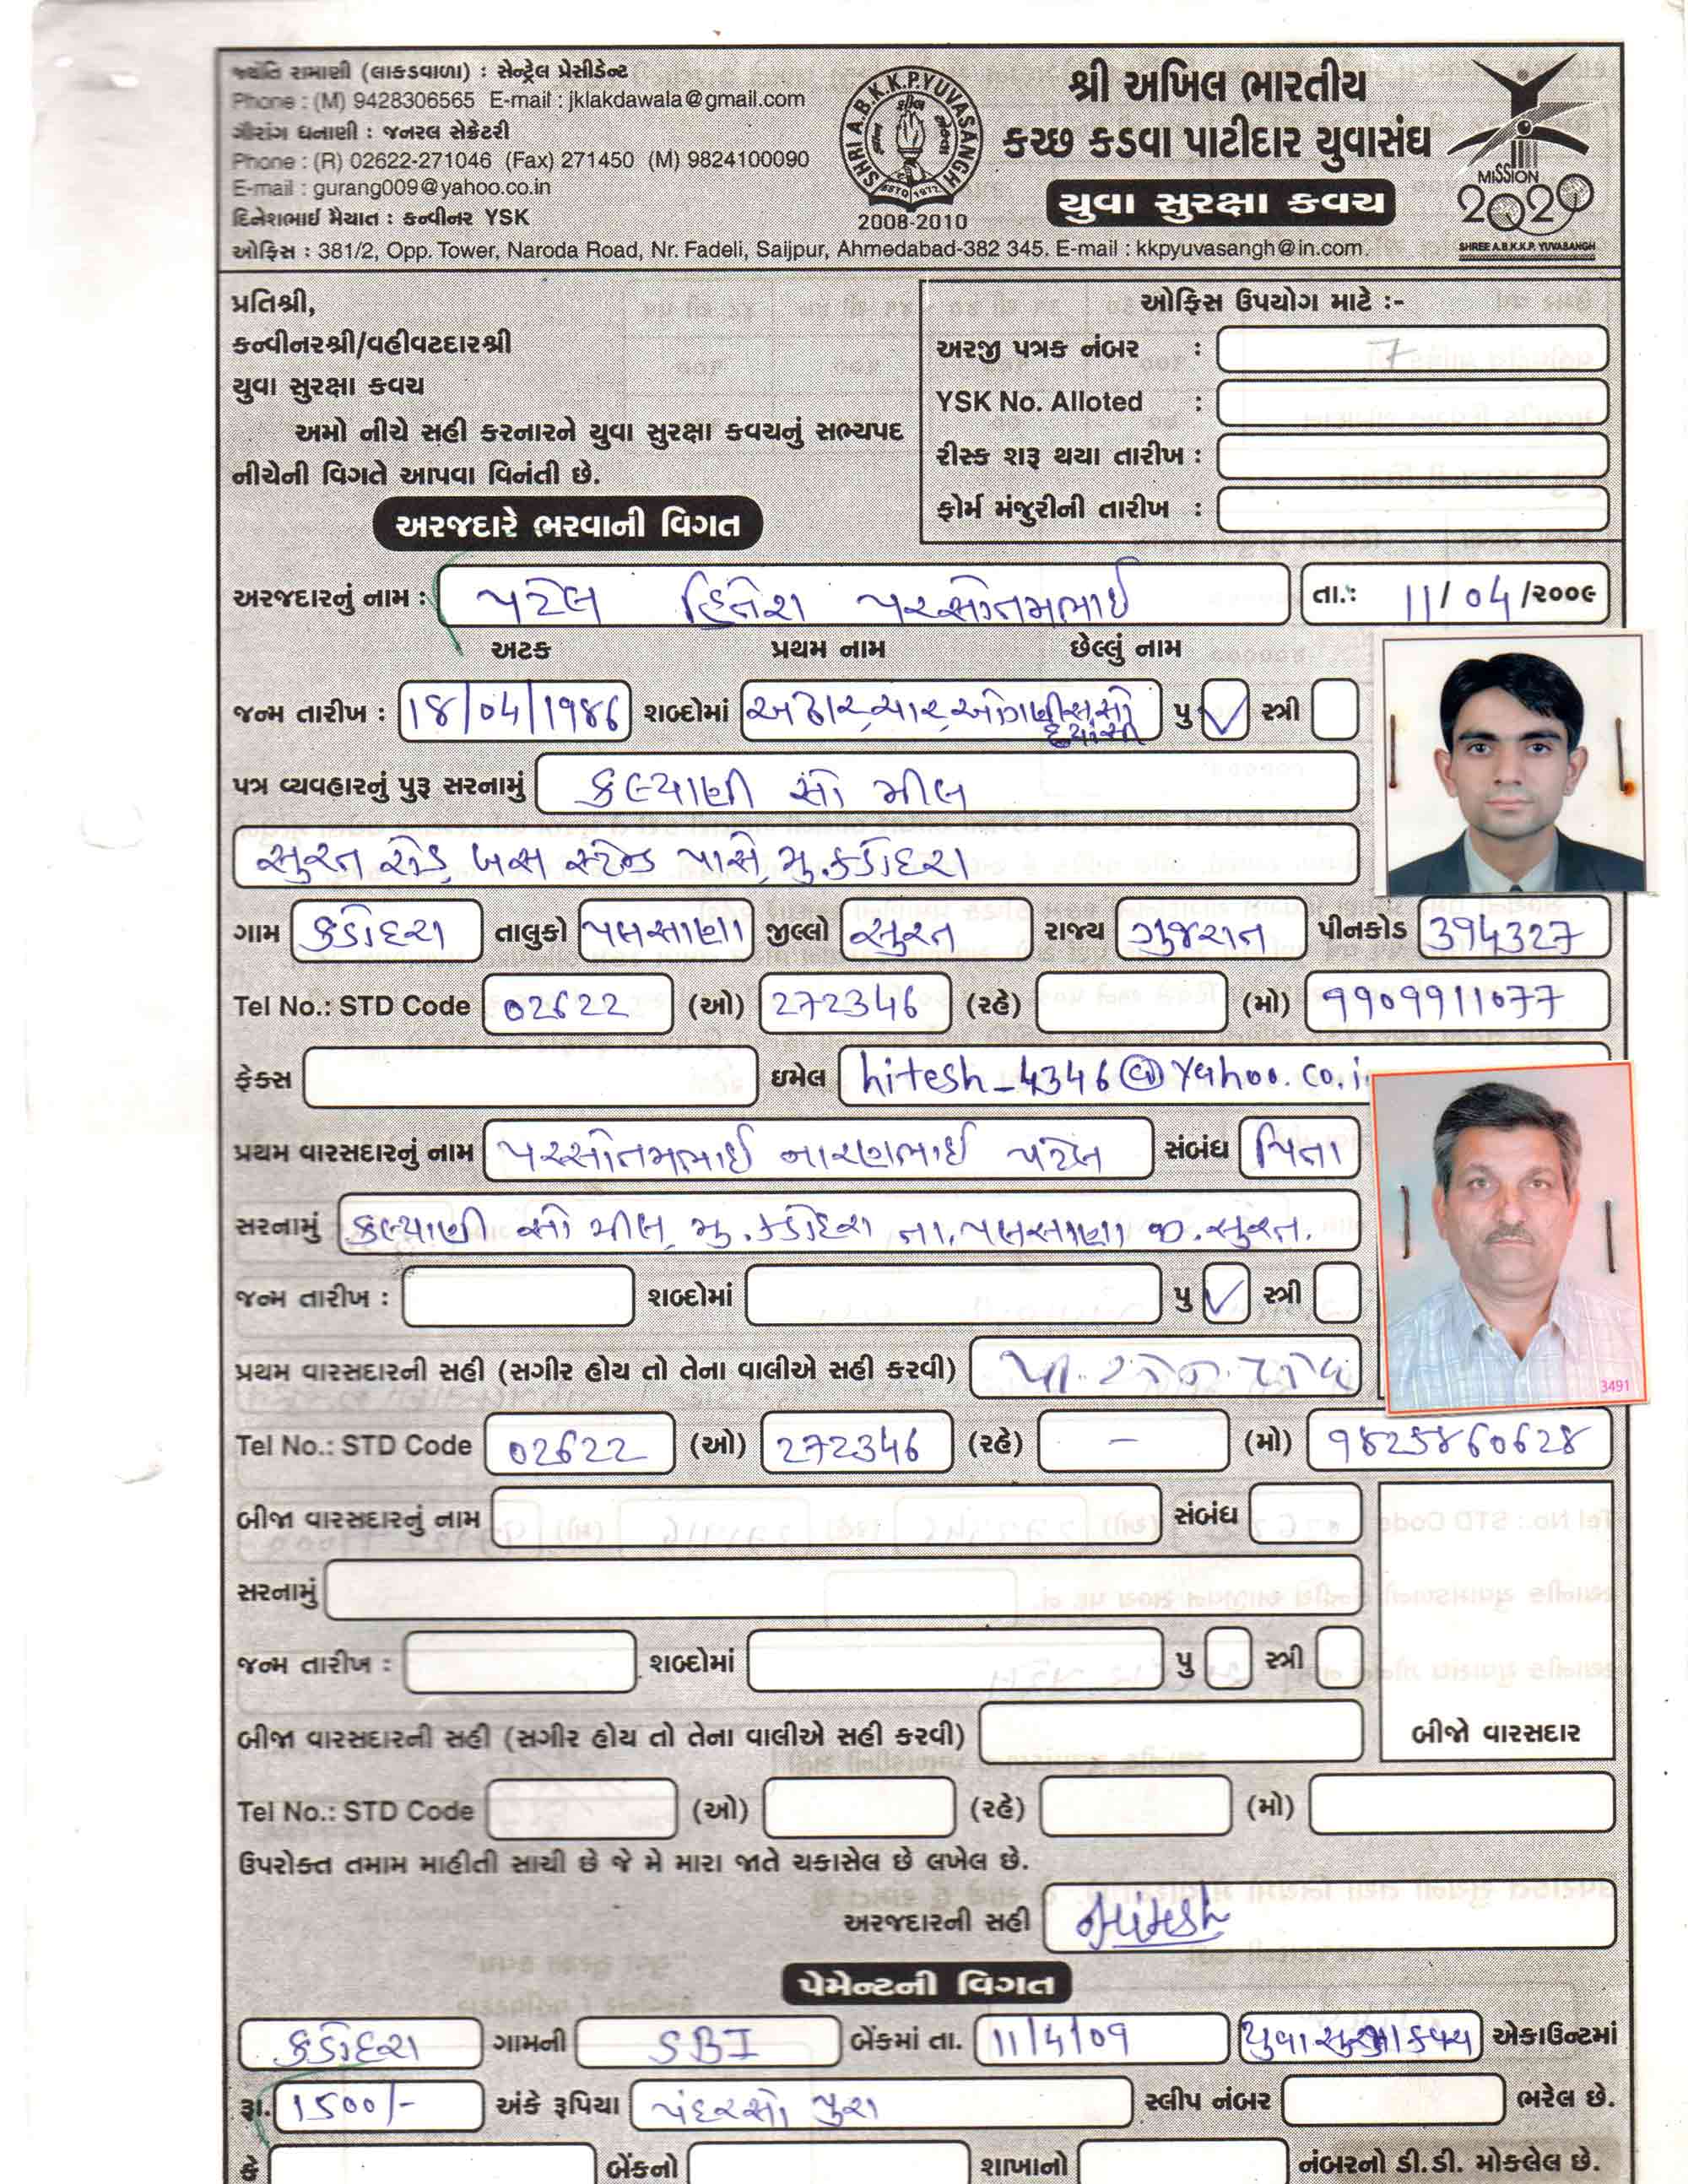 જ્યંતિ રામાણી (લાકડાવાળા) : સેન્ટ્રેલ પ્રેસીડેન્ટ
Phone : (M) 9428306565 E-mail : jklakdawala@gmail.com
ગૌરાંગ ધનાણી : જનરલ સેક્રેટરી
Phone : (R) 02622-271046 (Fax) 271450 (M) 9824100090
E-mail : gurang009@yahoo.co.in
દિનેશભાઈ મૈયાત : કન્વીનર YSK
SHRI A.B.K.K.P.YUVASANGH
ESTD 1972
2008-2010
શ્રી અખિલ ભારતીય
કચ્છ કડવા પાટીદાર યુવાસંઘ
યુવા સુરક્ષા કવચ
MISSION
2020
SHREE A.B.K.K.P. YUVASANGH
ઓફિસ : 381/2, Opp. Tower, Naroda Road, Nr. Fadeli, Saijpur, Ahmedabad-382 345. E-mail : kkpyuvasangh@in.com.
પ્રતિશ્રી,
કન્વીનરશ્રી/વહીવટદારશ્રી
યુવા સુરક્ષા કવચ
અમો નીચે સહી કરનારને યુવા સુરક્ષા કવચનું સભ્યપદ
નીચેની વિગતે આપવા વિનંતી છે.
ઓફિસ ઉપયોગ માટે :-
અરજી પત્રક નંબર : 7
YSK No. Alloted :
રીસ્ક શરૂ થયા તારીખ :
ફોર્મ મંજુરીની તારીખ :
અરજદારે ભરવાની વિગત
અરજદારનું નામ : પટેલ હિતેશ પરસોતમભાઈ તા.: 11/04/૨૦૦૯
અટક પ્રથમ નામ છેલ્લું નામ
જન્મ તારીખ : 18/04/1986 શબ્દોમાં અઢાર,ચાર,ઓગણીસસો છયાંસી પુ ✓ સ્ત્રી
પત્ર વ્યવહારનું પુરૂ સરનામું કલ્યાણી સો મીલ
સુરત રોડ, બસ સ્ટેન્ડ પાસે, મુ.કડોદરા
ગામ કડોદરા તાલુકો પલસાણા જીલ્લો સુરત રાજ્ય ગુજરાત પીનકોડ 394327
Tel No.: STD Code 02622 (ઓ) 272346 (રહે) (મો) 9909911077
ફેક્સ ઇમેલ hitesh_4346@yahoo.co.i
પ્રથમ વારસદારનું નામ પરસોતમભાઈ નારણભાઈ પટેલ સંબંધ પિતા
સરનામું કલ્યાણી સો મીલ, મુ.કડોદરા તા.પલસાણા જી.સુરત.
જન્મ તારીખ : શબ્દોમાં પુ ✓ સ્ત્રી
પ્રથમ વારસદારની સહી (સગીર હોય તો તેના વાલીએ સહી કરવી)
3491
Tel No.: STD Code 02622 (ઓ) 272346 (રહે) – (મો) 9825860628
બીજા વારસદારનું નામ સંબંધ
સરનામું
જન્મ તારીખ : શબ્દોમાં પુ સ્ત્રી
બીજા વારસદારની સહી (સગીર હોય તો તેના વાલીએ સહી કરવી)
બીજો વારસદાર
Tel No.: STD Code (ઓ) (રહે) (મો)
ઉપરોક્ત તમામ માહીતી સાચી છે જે મે મારા જાતે ચકાસેલ છે લખેલ છે.
અરજદારની સહી
પેમેન્ટની વિગત
કડોદરા ગામની SBI બેંકમાં તા. 11/4/09 યુવા સુરક્ષા કવચ એકાઉન્ટમાં
રૂા. 1500/- અંકે રૂપિયા પંદરસો પુરા સ્લીપ નંબર ભરેલ છે.
કે બેંકનો શાખાનો નંબરનો ડી.ડી. મોકલેલ છે.